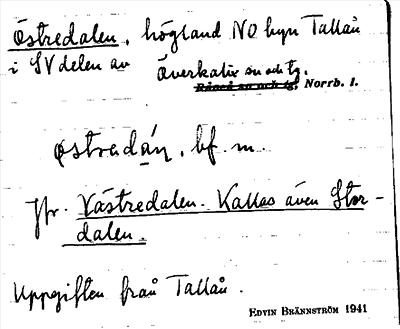 Östredalen, högland NO byn Tallån
i SV delen av Överkalix sn och tg.
Råneå sn och tg, Norrb. l.
østradán, bf. m.
Jfr. Västredalen. Kallas även Stor-
dalen.
Uppgiften från Tallån.
EDVIN BRÄNNSTRÖM 1941